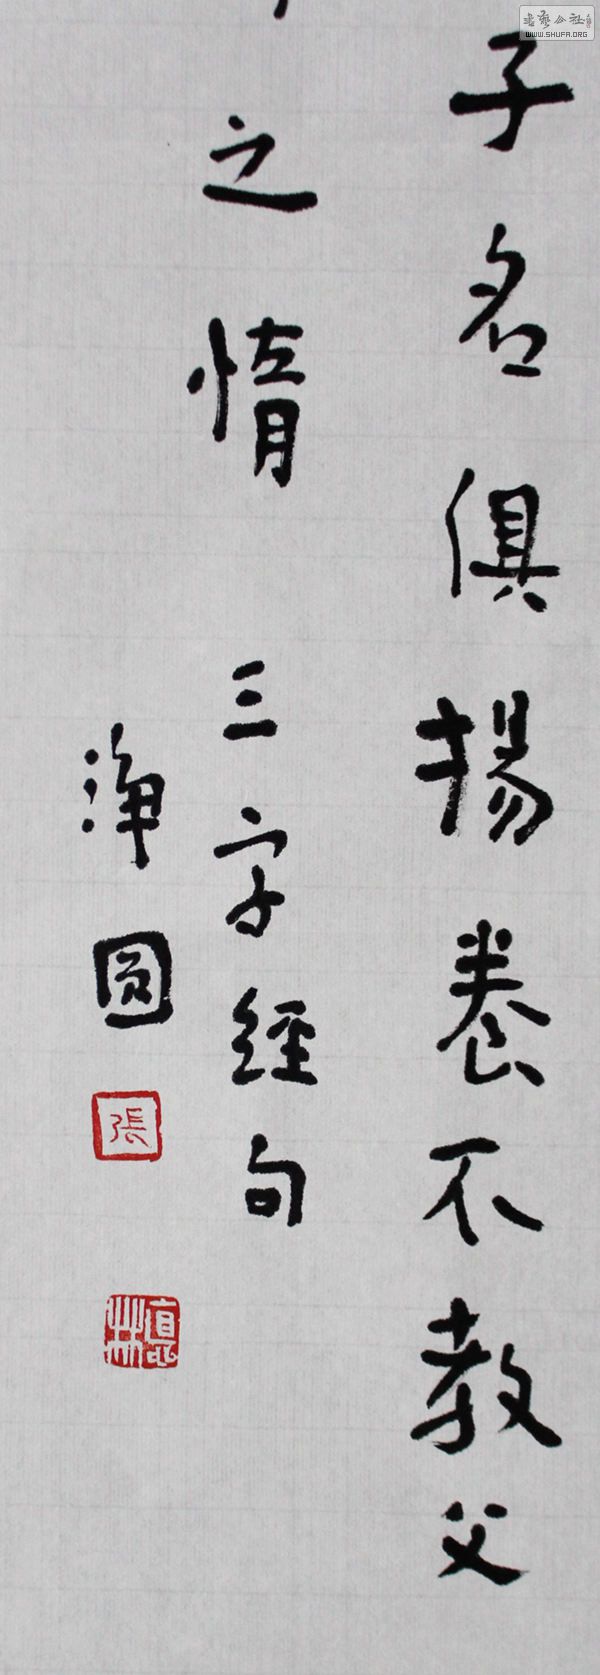 子名俱揚養不教父
之惰 三字經句
淨圓
張
書藝公社
WWW.SHUFA.ORG